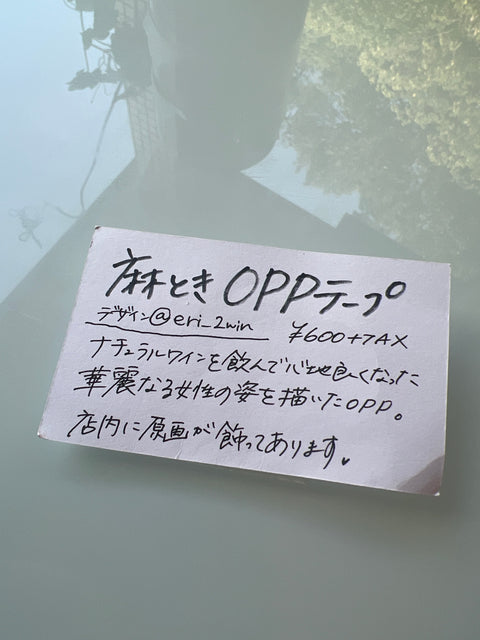 麻とき OPPテープ
デザイン@eri_2win ¥600+TAX
ナチュラルワインを飲んで心地良くなった
華麗なる女性の姿を描いたOPP。
店内に原画が飾ってあります。